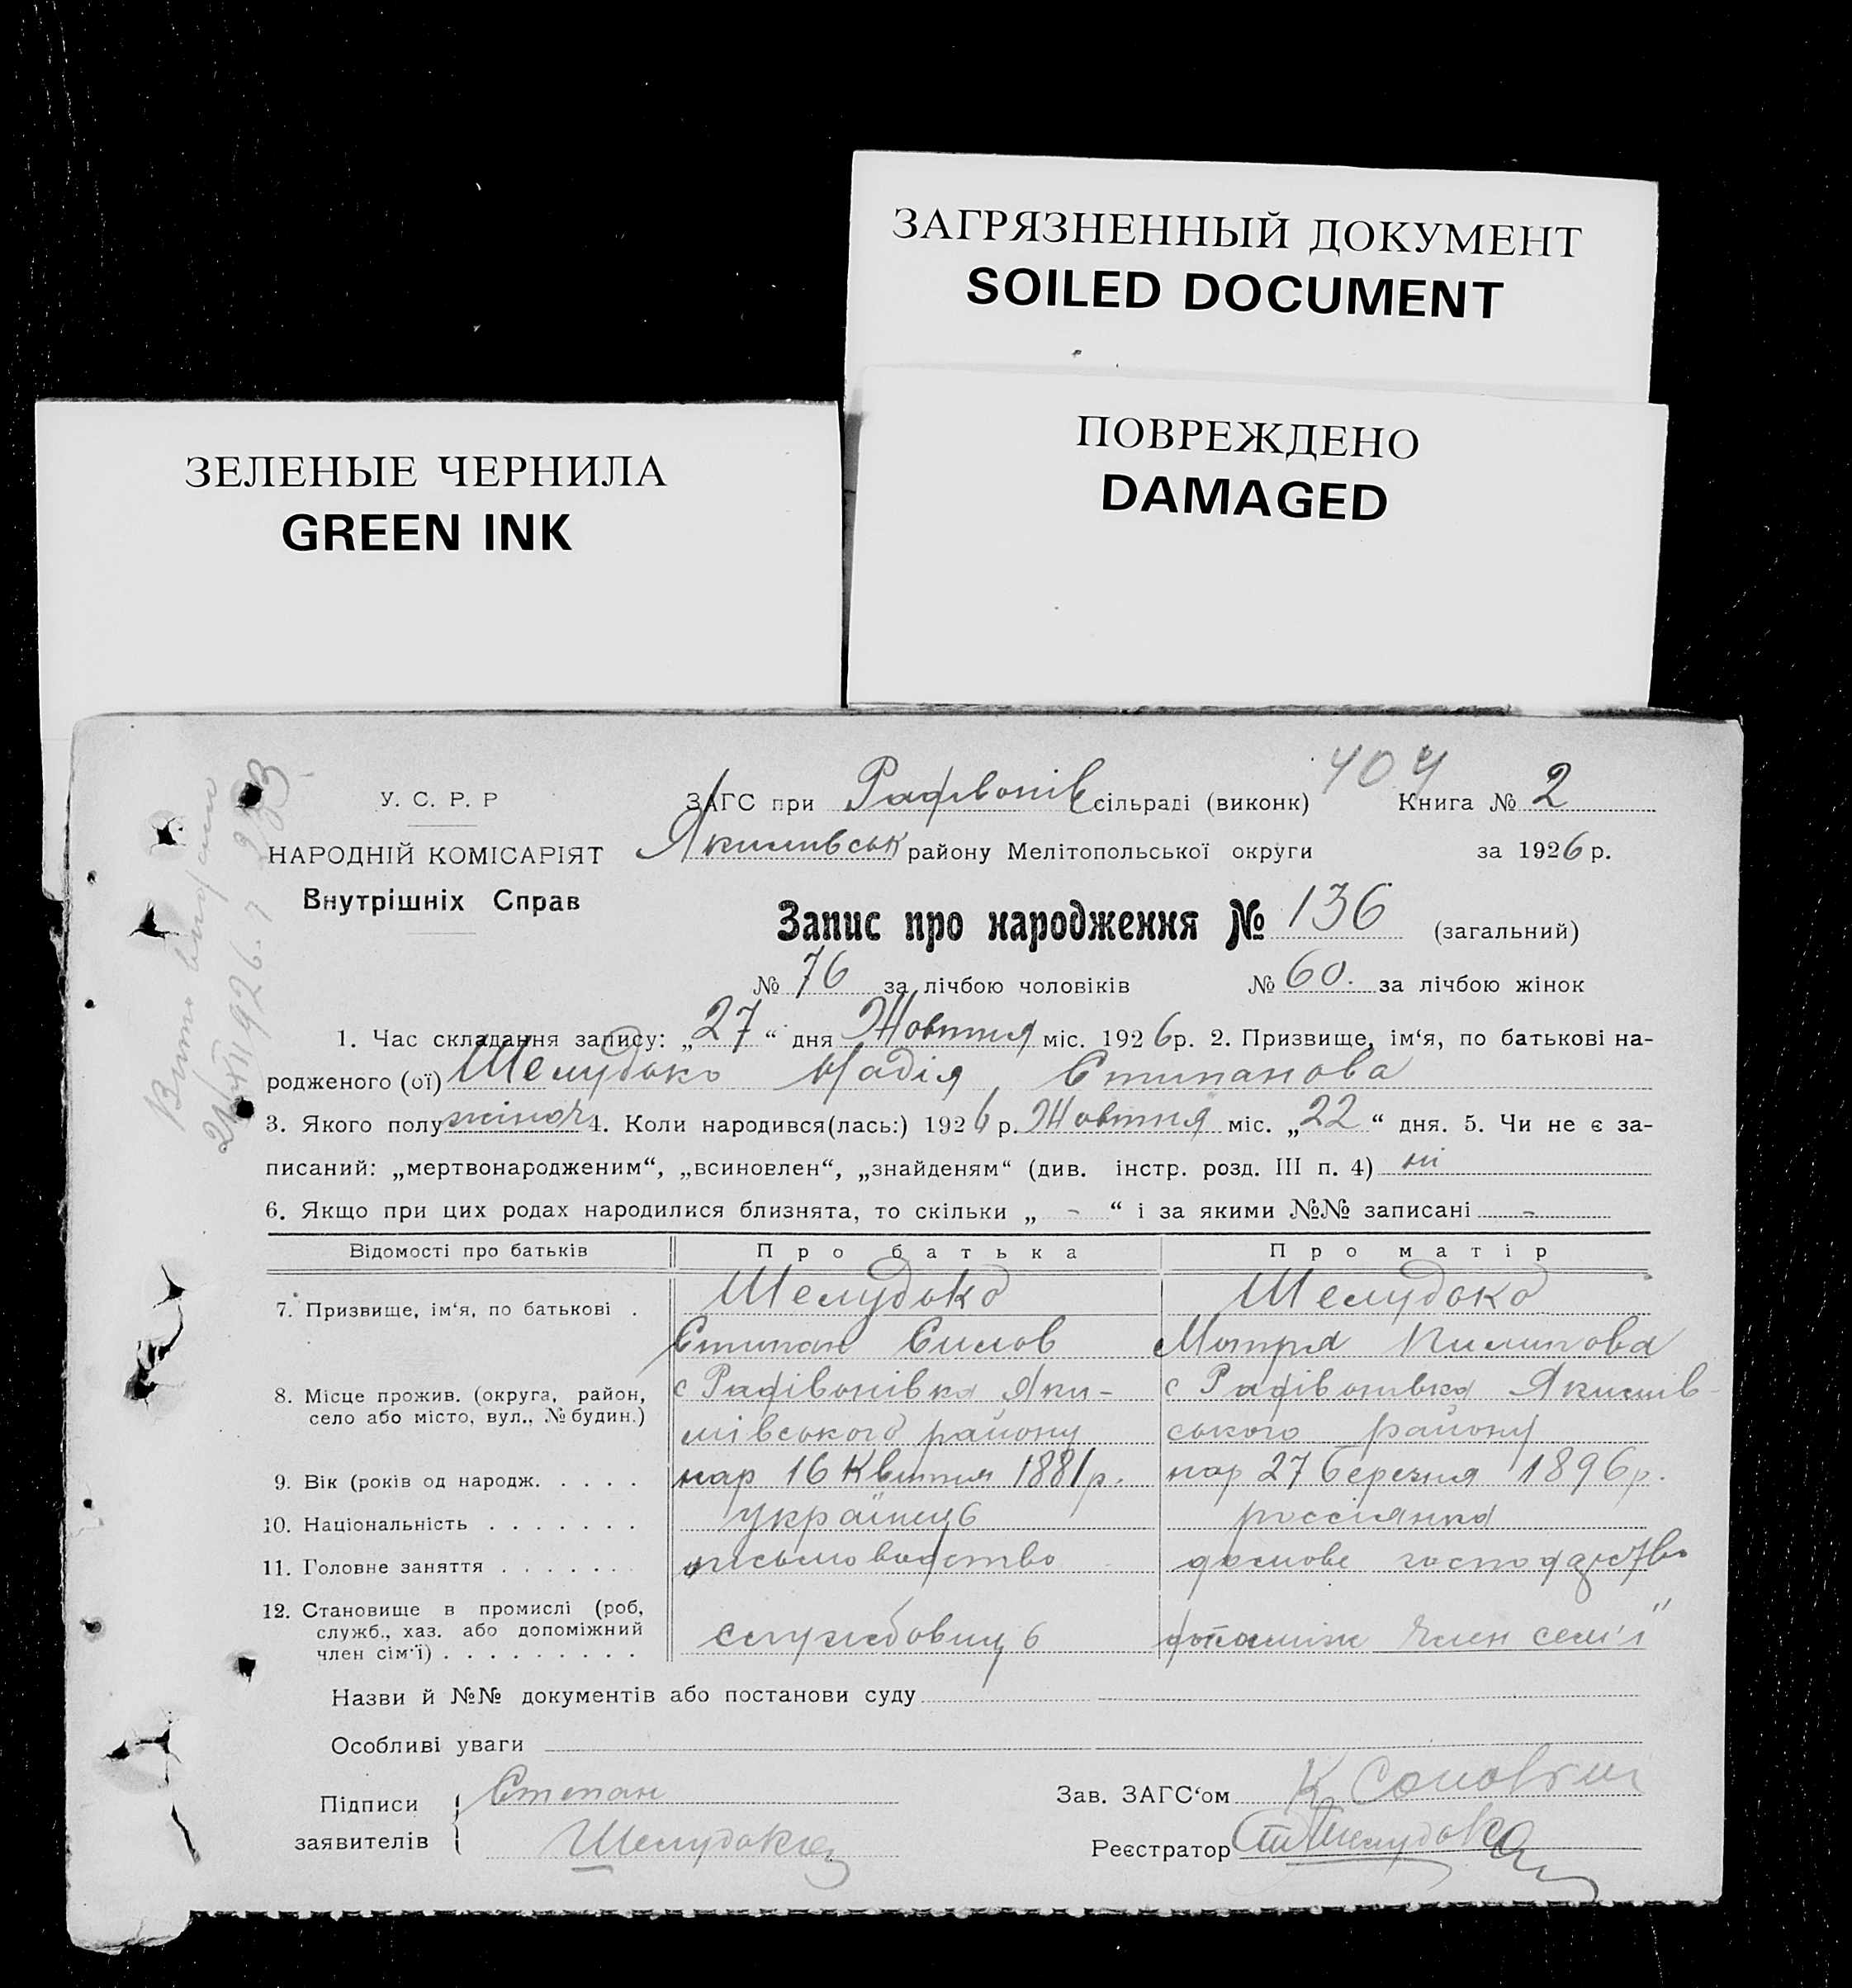 ЗАГРЯЗНЕННЫЙ ДОКУМЕНТ
SOILED DOCUMENT
ПОВРЕЖДЕНО
DAMAGED
ЗЕЛЕНЫЕ ЧЕРНИЛА
GREEN INK
У. С. Р. Р
НАРОДНІЙ КОМІСАРІЯТ
Внутрішніх Справ
ЗАГС при Радівонів сільраді (виконк) Книга № 2
Якимівськ району Мелітопольської округи за 1926 р.
Запис про народження № 136 (загальний)
№ 76 за лічбою чоловіків № 60. за лічбою жінок
1. Час складання запису: „27“ дня Жовтня міс. 1926 р. 2. Призвище, ім‘я, по батькові на-
родженого (ої) Шелудько Надія Степанова
3. Якого полу жіноч 4. Коли народився(лась:) 1926 р. Жовтня міс. „22“ дня. 5. Чи не є за-
писаний: „мертвонародженим“, „всиновлен“, „знайденям“ (див. інстр. розд. III п. 4) ні
6. Якщо при цих родах народилися близнята, то скільки „ - “ і за якими №№ записані -
Відомості про батьків Про батька Про матір
7. Призвище, ім‘я, по батькові . Шелудько Шелудько
Степан Силов Мотря Пилипова
8. Місце прожив. (округа, район, с Радівонівка Яки- с Радівонівка Якимів-
село або місто, вул., № будин.) мівського району ського району
9. Вік (років од народж. . . . . нар 16 Квітня 1881 р. нар 27 березня 1896 р.
10. Національність . . . . . . . українець россіянка
11. Головне заняття . . . . . . . письмоводство домове господарство
12. Становище в промислі (роб,
служб., хаз. або допоміжний службовиць допоміж член сем'ї
член сім‘ї) . . . . . . . . .
Назви й №№ документів або постанови суду
Особливі уваги
Підписи Степан Зав. ЗАГС‘ом
заявителів Шелудько Реєстратор Ст Шелудько